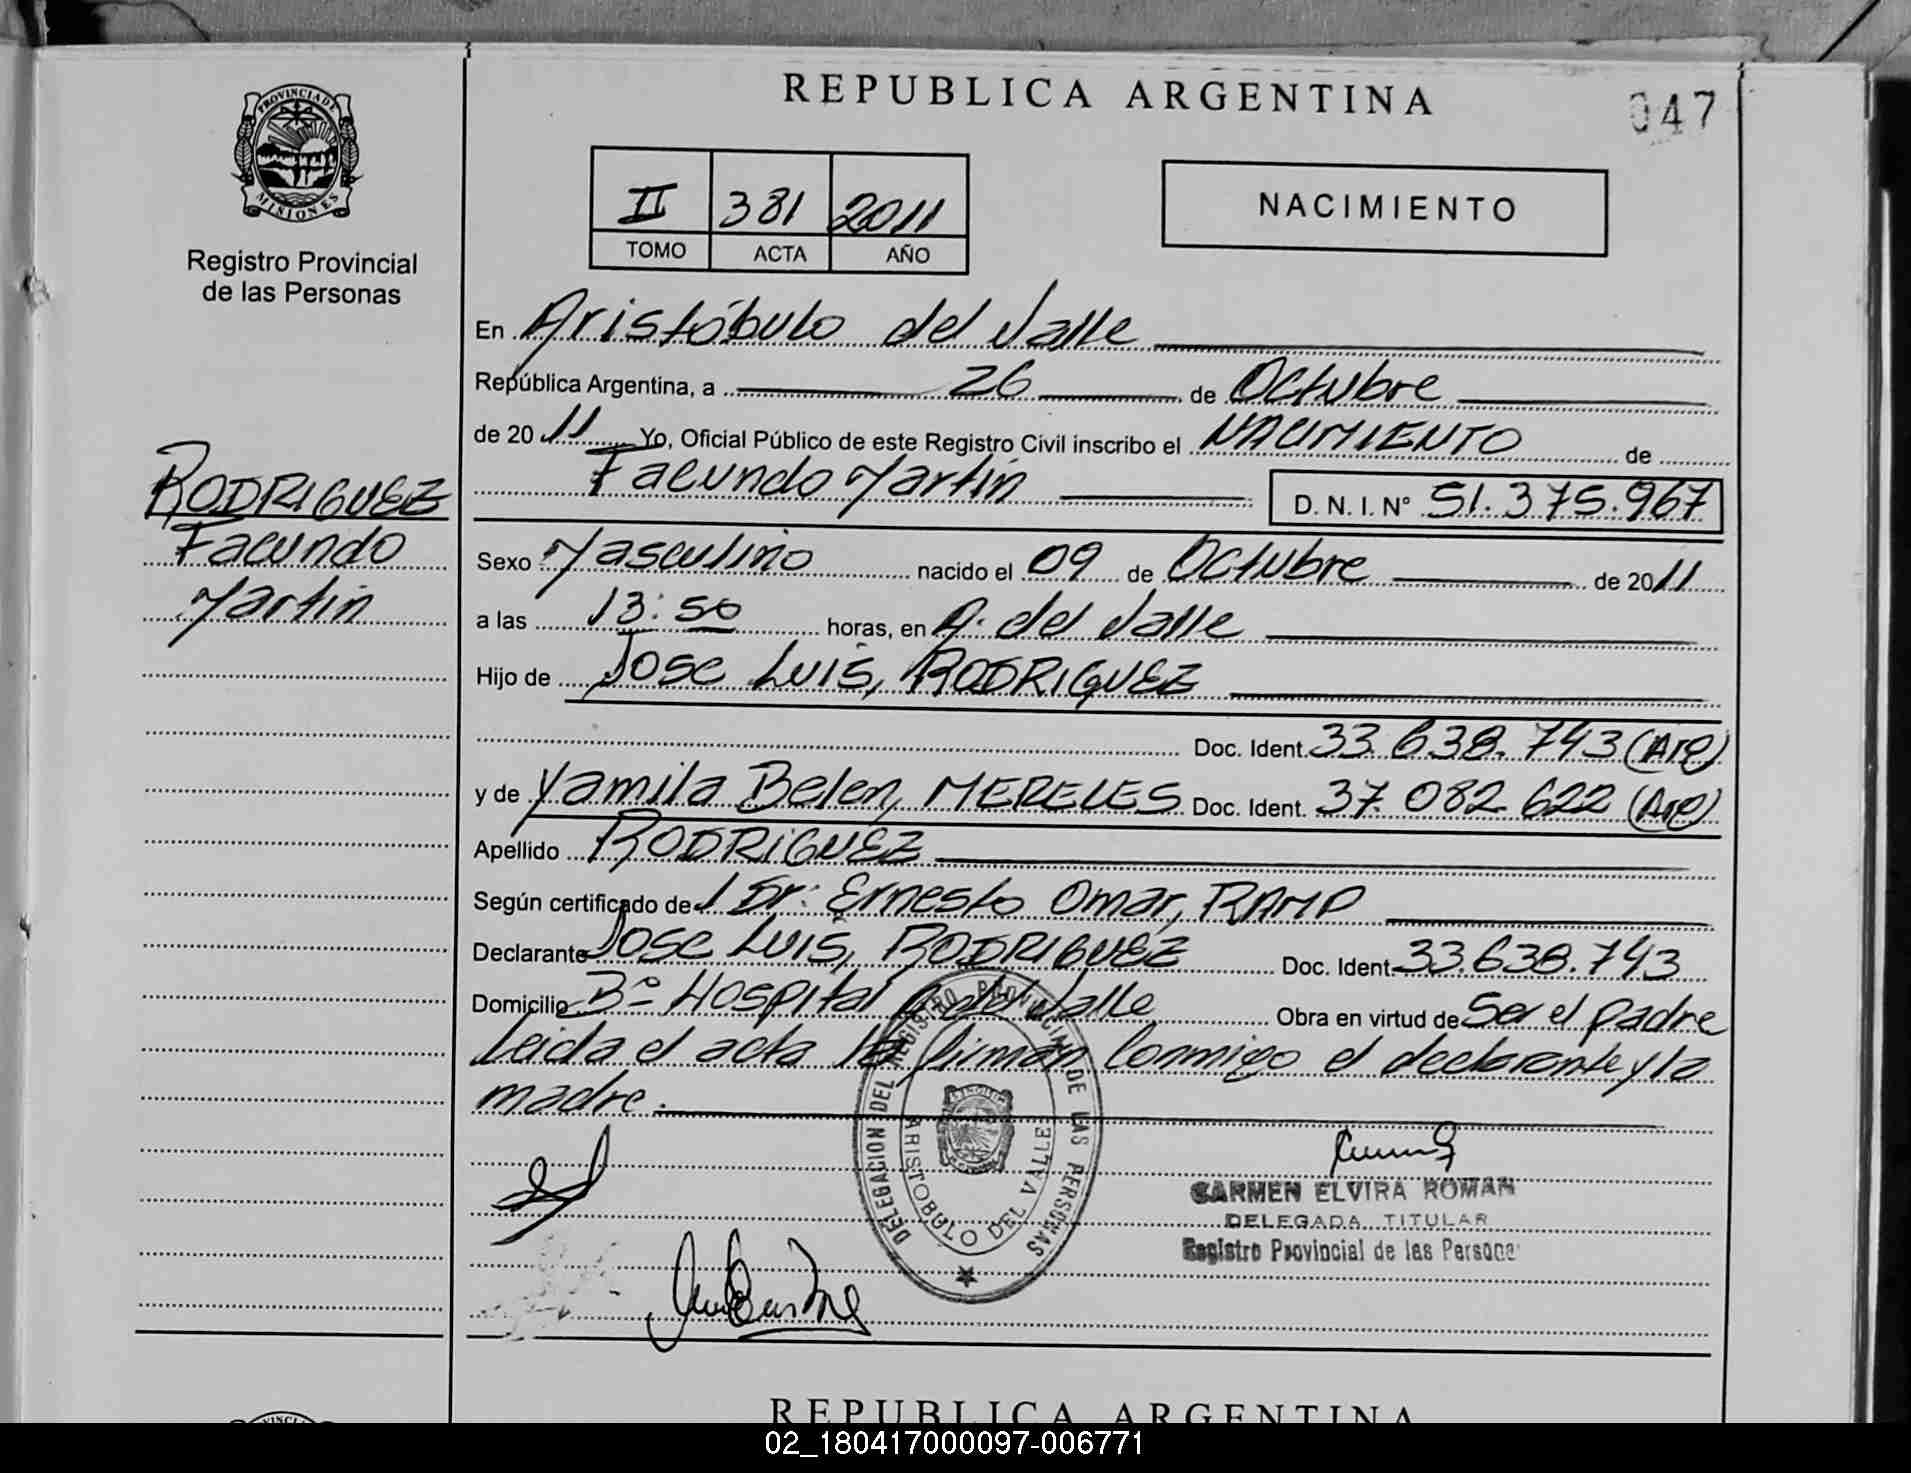 REPUBLICA ARGENTINA
047
PROVINCIA DE
MISIONES
Registro Provincial
de las Personas
II 381 2011
TOMO ACTA AÑO
NACIMIENTO
En Aristóbulo del Valle
República Argentina, a 26 de Octubre
de 2011 Yo, Oficial Público de este Registro Civil inscribo el NACIMIENTO de
Facundo Martin D. N. I. Nº 51.375.967
RODRIGUEZ
Facundo
Martin
Sexo Masculino nacido el 09 de Octubre de 2011
a las 13:50 horas, en A. del Valle
Hijo de Jose Luis, RODRIGUEZ
Doc. Ident. 33.638.743 (Arg)
y de Yamila Belen, MERELES Doc. Ident. 37.082.622 (Arg)
Apellido RODRIGUEZ
Según certificado de Dr: Ernesto Omar, RAMP
Declarante Jose Luis, RODRIGUEZ Doc. Ident. 33.638.743
Domicilio Bº Hospital A. del Valle Obra en virtud de Ser el padre
Leida el acta la firman Conmigo el declarante y la
madre.
DELEGACION DEL REGISTRO PROVINCIAL DE LAS PERSONAS
ARISTOBULO DEL VALLE
CARMEN ELVIRA ROMAN
DELEGADA TITULAR
Registro Provincial de las Personas
REPUBLICA ARGENTINA
02_180417000097-006771